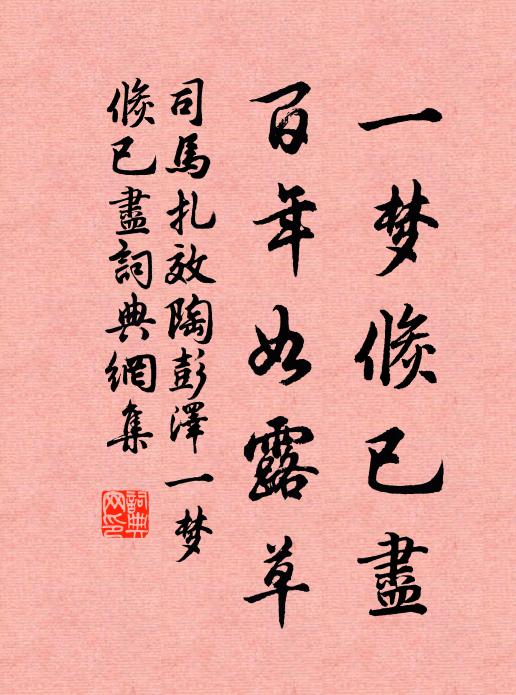 一梦倏已盡
百年如露草
司馬扎效陶彭澤一梦
倏已盡詞典網集
詞典
网印